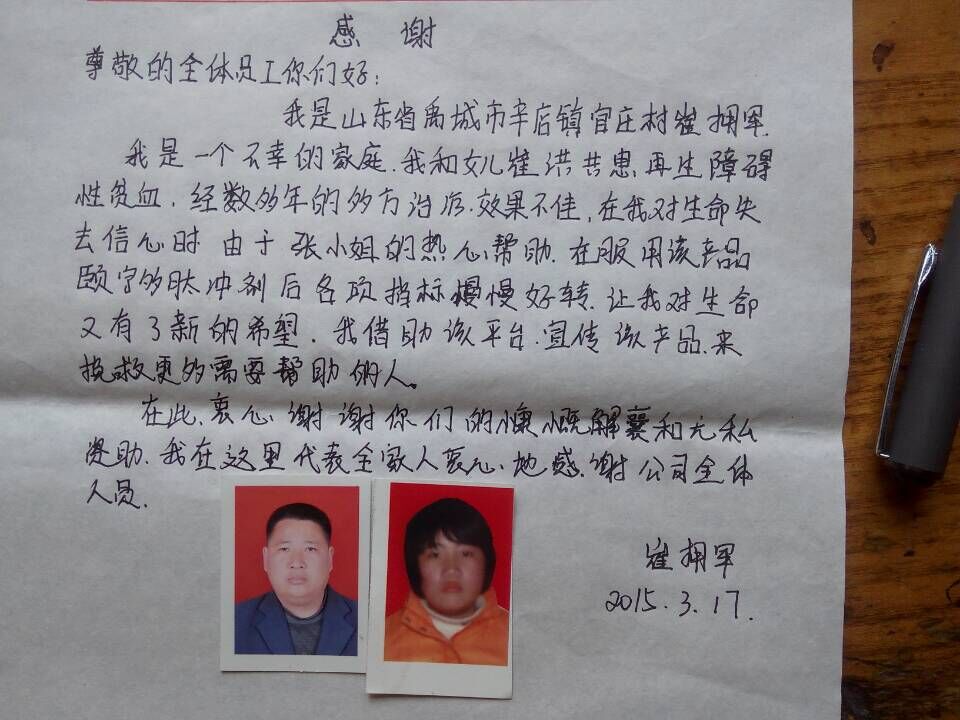 感谢
尊敬的全体员工你们好:
我是山东省禹城市辛店镇官庄村崔拥军.
我是一个不幸的家庭.我和女儿崔洪共患再生障碍
性贫血.经数多年的多方治疗.效果不佳,在我对生命失
去信心时由于张小姐的热心帮助.在服用该产品
颐宁多肽冲剂后各项指标慢慢好转.让我对生命
又有了新的希望.我借助该平台.宣传该产品.来
挽救更多需要帮助的人。
在此,衷心谢谢你们的慷慨解囊和无私
资助.我在这里代表全家人衷心地感谢公司全体
人员.
崔拥军
2015.3.17.